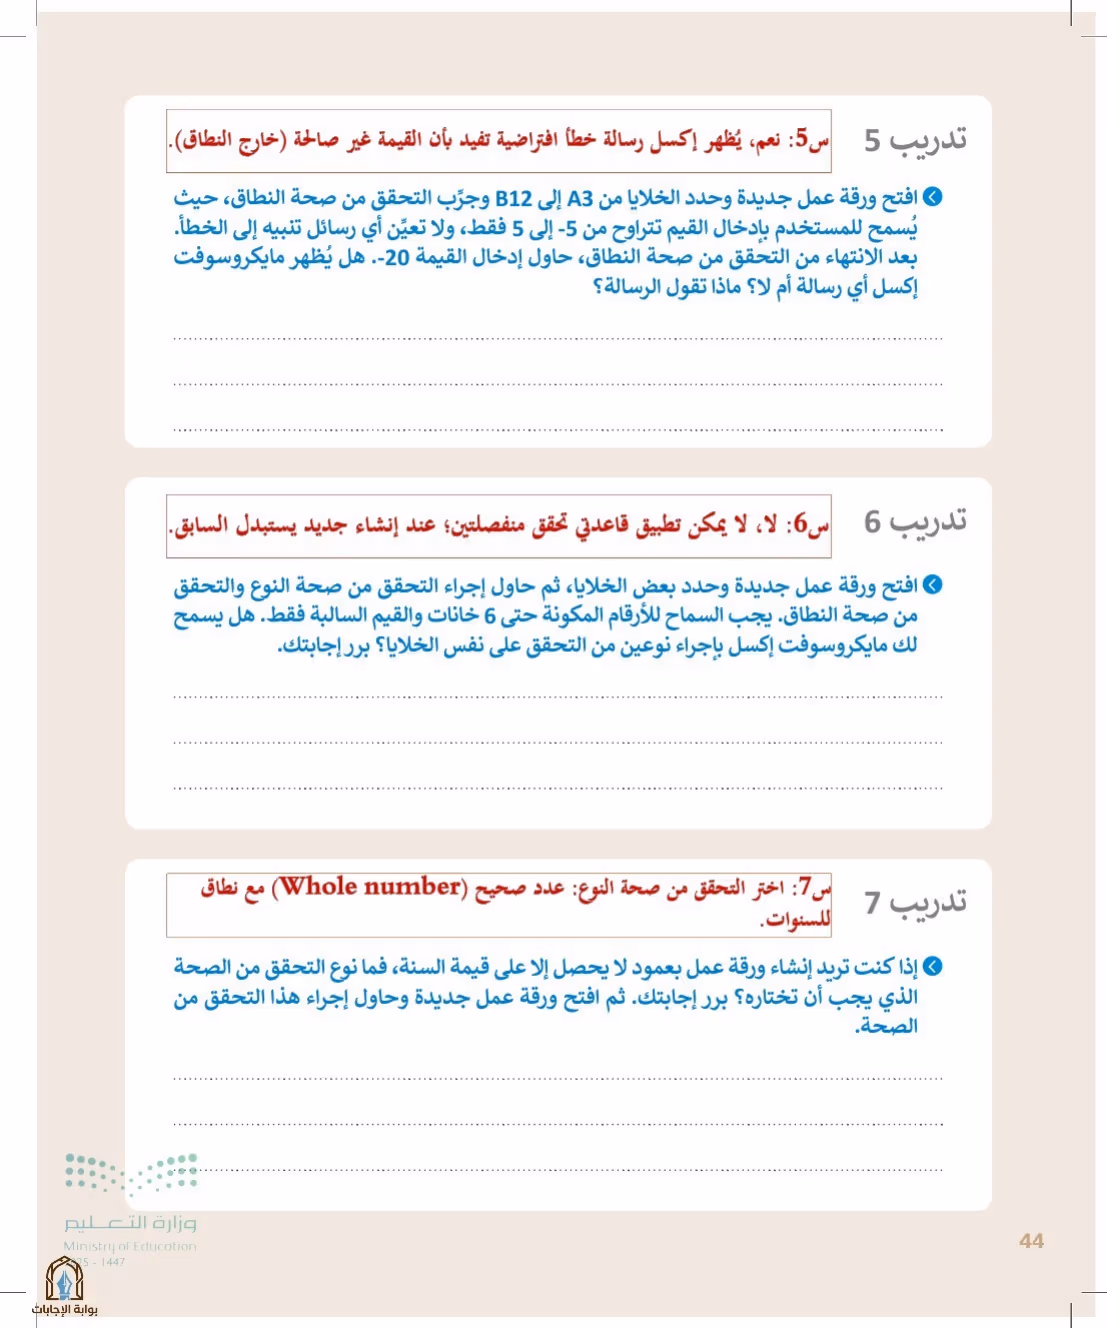 تدريب 5
س5: نعم، يُظهر إكسل رسالة خطأ افتراضية تفيد بأن القيمة غير صالحة (خارج النطاق).
افتح ورقة عمل جديدة وحدد الخلايا من A3 إلى B12 وجرِّب التحقق من صحة النطاق، حيث
يُسمح للمستخدم بإدخال القيم تتراوح من 5- إلى 5 فقط، ولا تعيِّن أي رسائل تنبيه إلى الخطأ.
بعد الانتهاء من التحقق من صحة النطاق، حاول إدخال القيمة 20-. هل يُظهر مايكروسوفت
إكسل أي رسالة أم لا؟ ماذا تقول الرسالة؟
تدريب 6
س6: لا، لا يمكن تطبيق قاعدتي تحقق منفصلتين؛ عند إنشاء جديد يستبدل السابق.
افتح ورقة عمل جديدة وحدد بعض الخلايا، ثم حاول إجراء التحقق من صحة النوع والتحقق
من صحة النطاق. يجب السماح للأرقام المكونة حتى 6 خانات والقيم السالبة فقط. هل يسمح
لك مايكروسوفت إكسل بإجراء نوعين من التحقق على نفس الخلايا؟ برر إجابتك.
تدريب 7
س7: اختر التحقق من صحة النوع: عدد صحيح (Whole number) مع نطاق
للسنوات.
إذا كنت تريد إنشاء ورقة عمل بعمود لا يحصل إلا على قيمة السنة، فما نوع التحقق من الصحة
الذي يجب أن تختاره؟ برر إجابتك. ثم افتح ورقة عمل جديدة وحاول إجراء هذا التحقق من
الصحة.
وزارة التعليم
Ministry of Education
- 1447
44
بوابة الإجابات